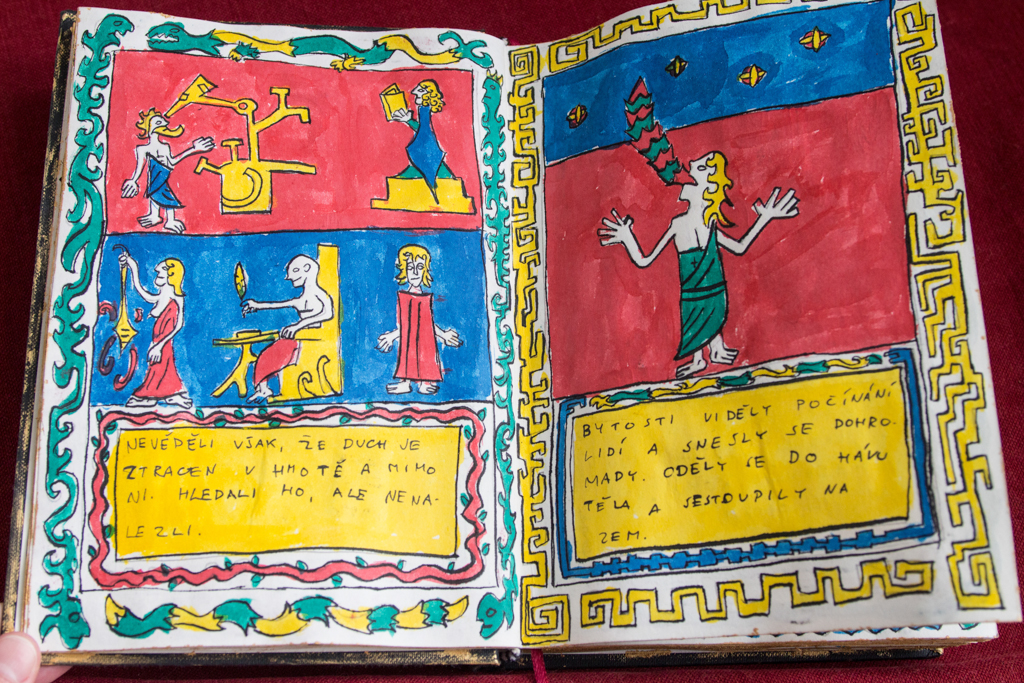 NEVĚDĚLI VŠAK, ŽE DUCH JE
ZTRACEN V HMOTĚ A MIMO
NI. HLEDALI HO, ALE NENA-
LEZLI.
BYTOSTI VIDĚLY POČÍNÁNÍ
LIDÍ A SNESLY SE DOHRO-
MADY. ODĚLY SE DO HÁVU
TĚLA A SESTOUPILY NA
ZEM.